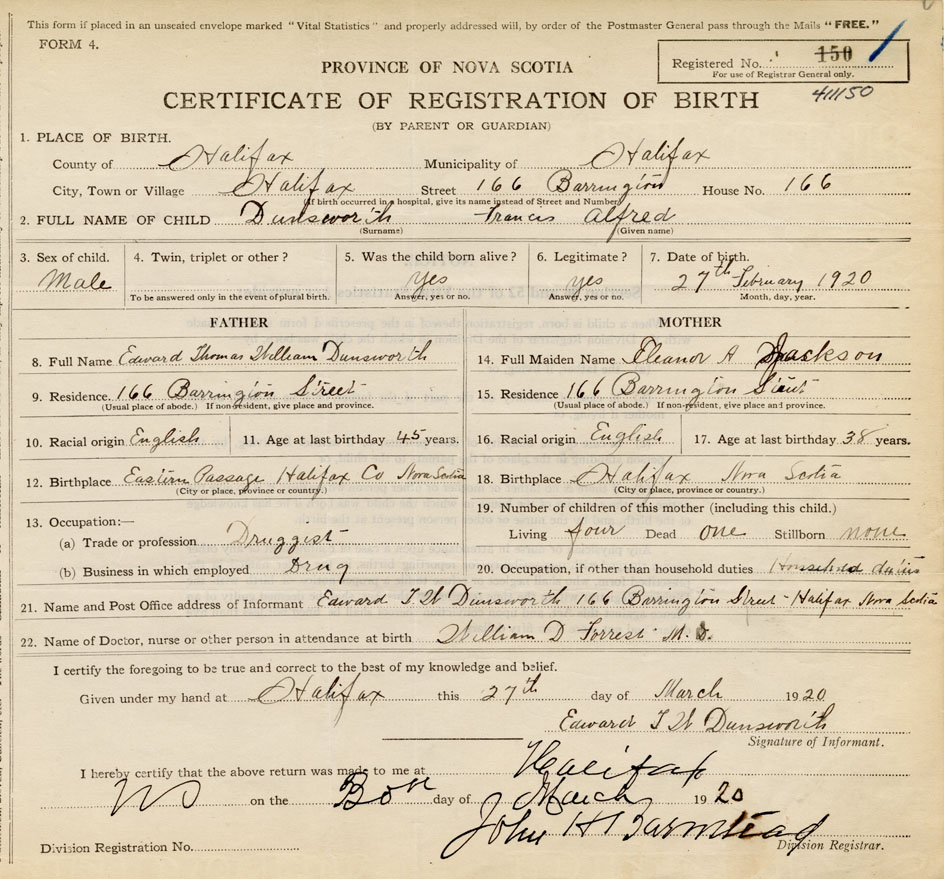 This form if placed in an unsealed envelope marked "Vital Statistics" and properly addressed will, by order of the Postmaster General pass through the Mails "FREE."
FORM 4.
Registered No. 150
For use of Registrar General only.
411150
PROVINCE OF NOVA SCOTIA
CERTIFICATE OF REGISTRATION OF BIRTH
(BY PARENT OR GUARDIAN)
1. PLACE OF BIRTH.
County of Halifax Municipality of Halifax
City, Town or Village Halifax Street 166 Barrington House No. 166
(If birth occurred in a hospital, give its name instead of Street and Number)
2. FULL NAME OF CHILD Dunsworth Francis Alfred
(Surname) (Given name)
3. Sex of child. 4. Twin, triplet or other? 5. Was the child born alive? 6. Legitimate? 7. Date of birth.
Male yes yes 27th February 1920
To be answered only in the event of plural birth. Answer, yes or no. Answer, yes or no. Month, day, year.
FATHER MOTHER
8. Full Name Edward Thomas William Dunsworth 14. Full Maiden Name Eleanor A Jackson
9. Residence. 166 Barrington Street 15. Residence 166 Barrington Street
(Usual place of abode.) If non-resident, give place and province. (Usual place of abode.) If non-resident, give place and province.
10. Racial origin English 11. Age at last birthday 45 years. 16. Racial origin English 17. Age at last birthday 38 years.
12. Birthplace Eastern Passage Halifax Co Nova Scotia 18. Birthplace Halifax Nova Scotia
(City or place, province or country.) (City or place, province or country.)
13. Occupation:— 19. Number of children of this mother (including this child.)
(a) Trade or profession Druggist Living four Dead one Stillborn none
(b) Business in which employed Drug 20. Occupation, if other than household duties Household duties
21. Name and Post Office address of Informant Edward T W Dunsworth 166 Barrington Street - Halifax Nova Scotia
22. Name of Doctor, nurse or other person in attendance at birth William D Forrest M. D.
I certify the foregoing to be true and correct to the best of my knowledge and belief.
Given under my hand at Halifax this 27th day of March 1920
Edward T W Dunsworth
Signature of Informant.
I hereby certify that the above return was made to me at Halifax
NS on the day of March 1920
John H Barnstead
Division Registration No. Division Registrar.